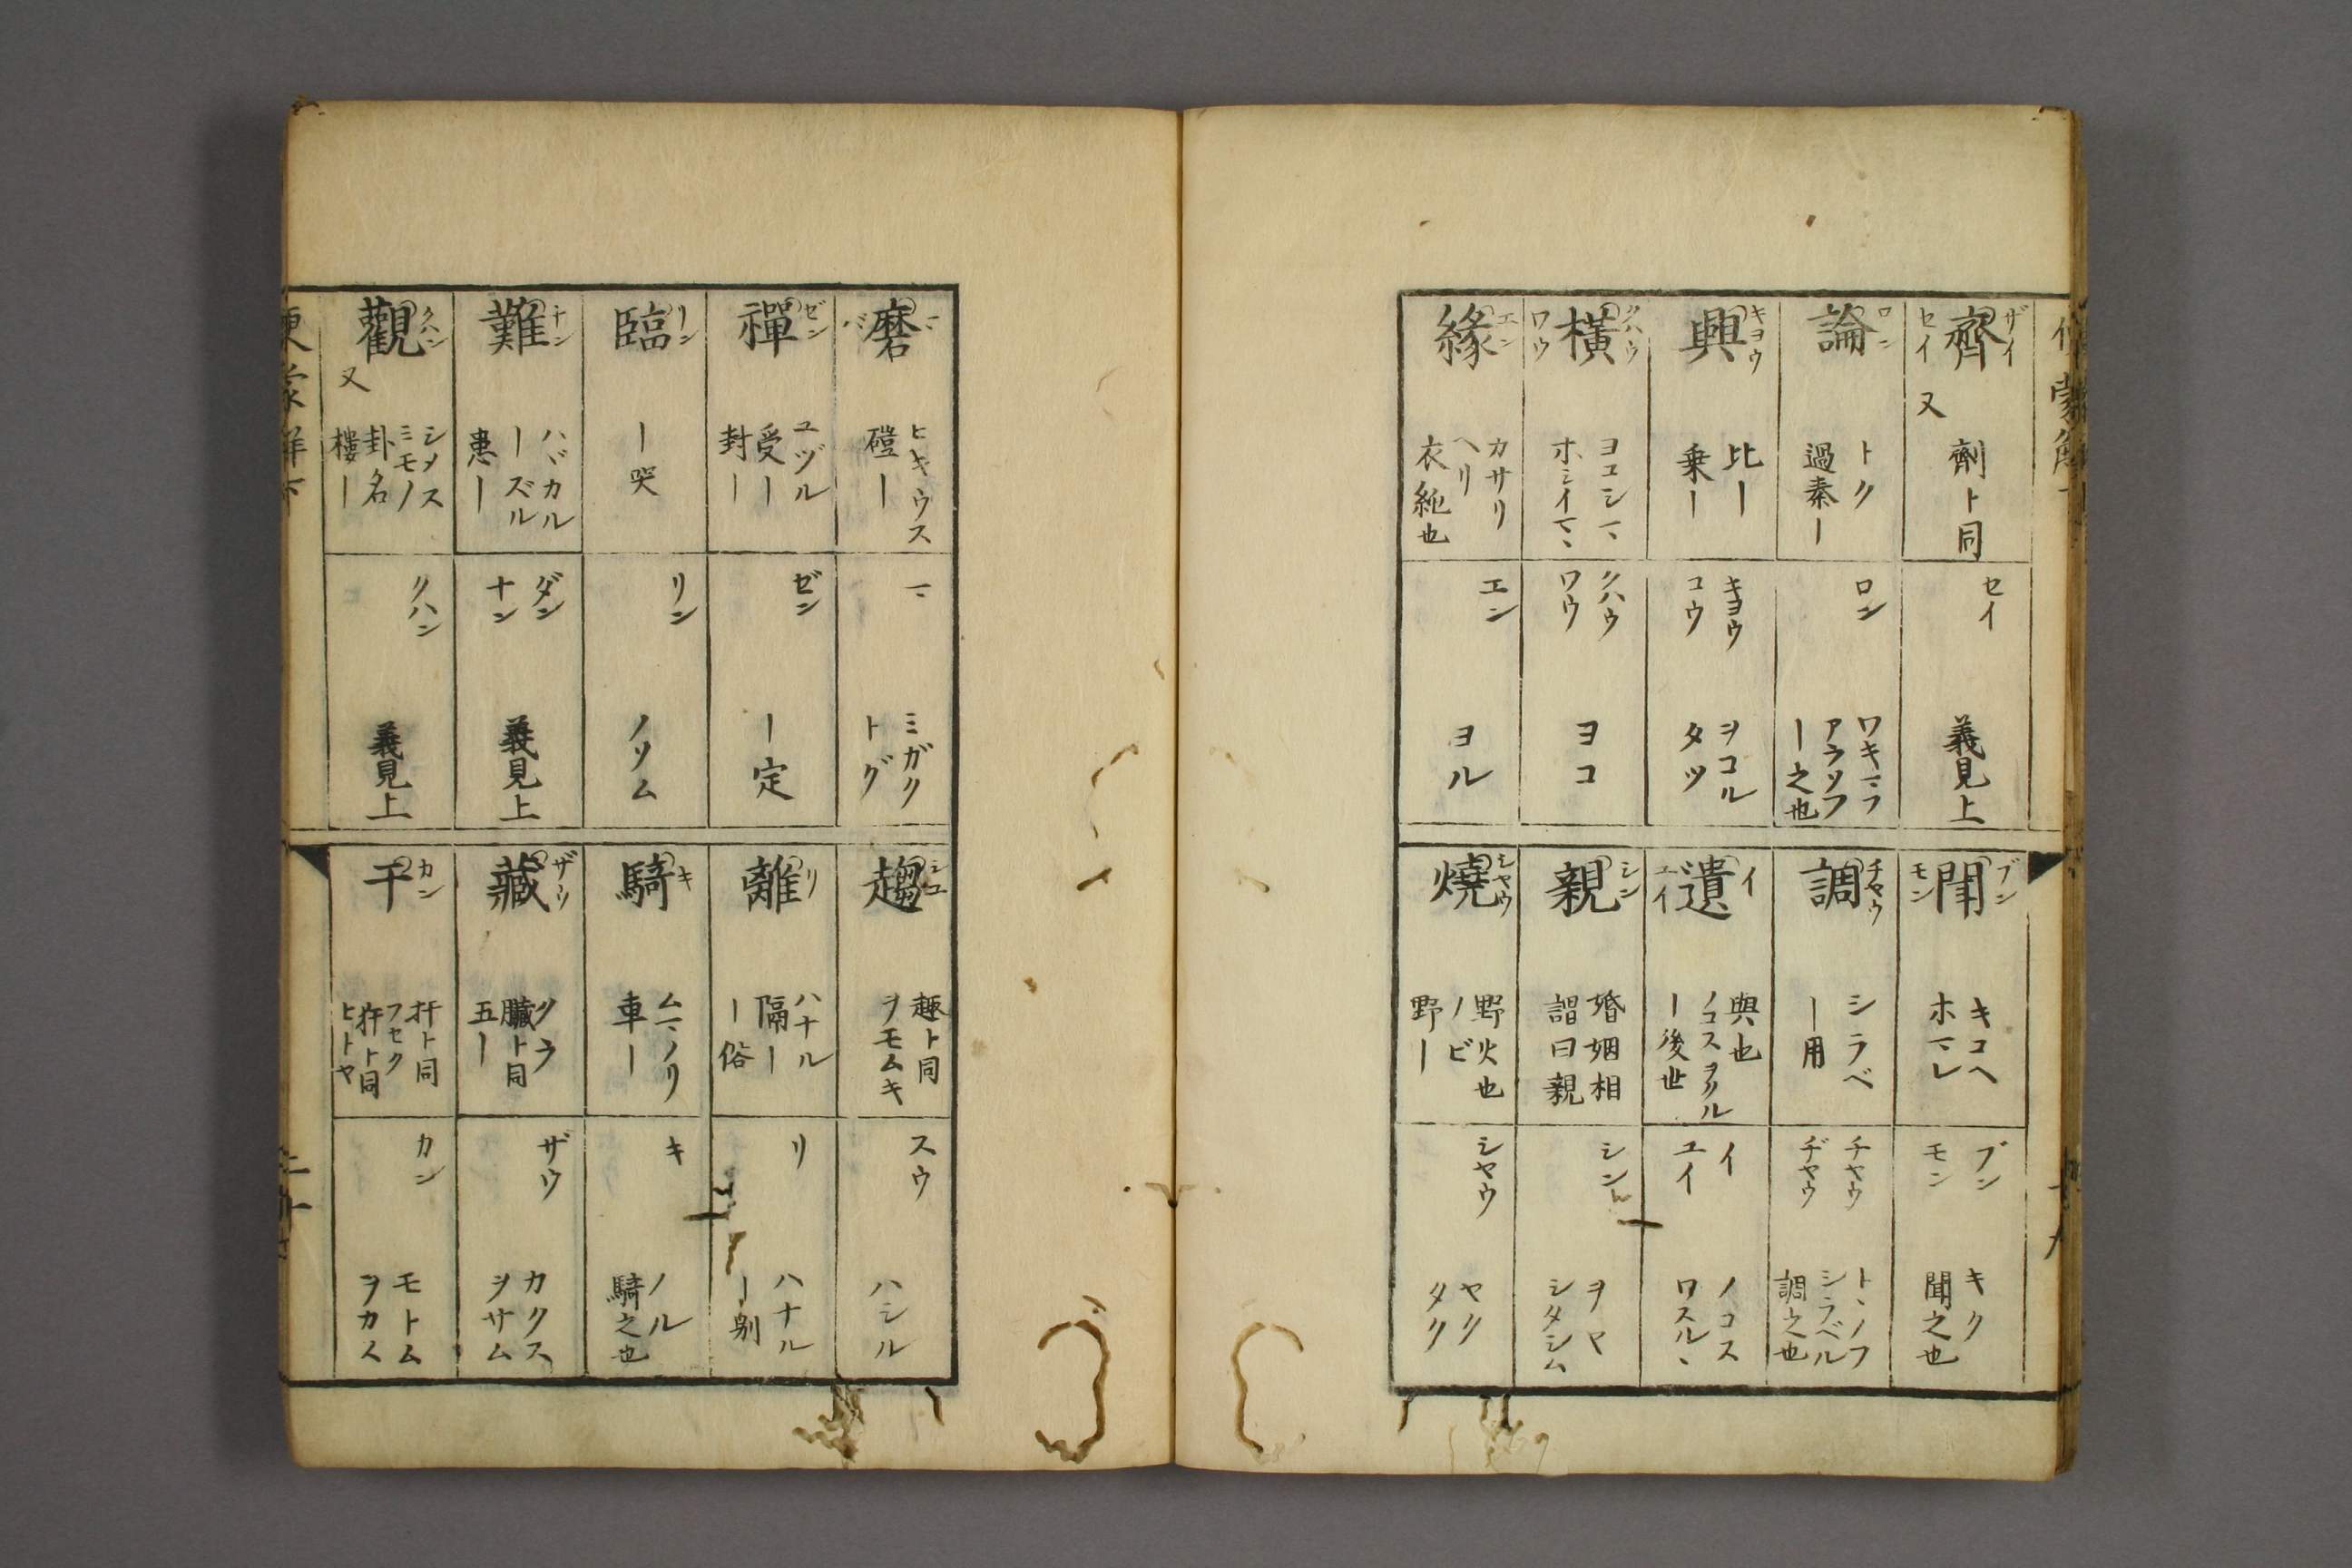 齊 ザイ セイ 又
劑ト同
セイ
義見上
論 ロン
トク
過秦ー
ロン
ワキマフ
アラソフ
ー之也
興 キヨウ
比ー
乗ー
キヨウ
コウ
ヲコル
タツ
橫 クハウ ワウ
ヨコシマ
ホシイマヽ
クハウ
ワウ
ヨコ
緣 エン
カサリ
ヘリ
衣純也
エン
ヨル
聞 ブン モン
キコヘ
ホマレ
ブン
モン
キク
聞之也
調 チヤウ
シラベ
ー用
チヤウ
ヂヤウ
トヽノフ
シラベル
調之也
遺 イ ユイ
與也
ノコスヲクル
ー後世
イ
ユイ
ノコス
ワスルヽ
親 シン
婚姻相
謂曰親
シン
ヲヤ
シタシム
燒 シヤウ
野火也
ノビ
野ー
シヤウ
ヤク
タク
磨 マ バ
ヒキウス
磑ー
マ
ミガク
トグ
禪 ゼン
ユヅル
受ー
封ー
ゼン
ー定
臨 リン
ー哭
リン
ノソム
難 ナン
ハヾカル
ーズル
患ー
ダン
ナン
義見上
觀 クハン 又
シメス
ミモノ
卦名
樓ー
クハン
義見上
趨 シユ
趣ト同
ヲモムキ
スウ
ハシル
離 リ
ハナル
隔ー
ー俗
リ
ハナル
ー別
騎 キ
ムマノリ
車ー
キ
ノル
騎之也
藏 ザウ
クラ
臟ト同
五ー
ザウ
カクス
ヲサム
干 カン
扞ト同
フセク
犴ト同
ヒトヤ
カン
モトム
ヲカス